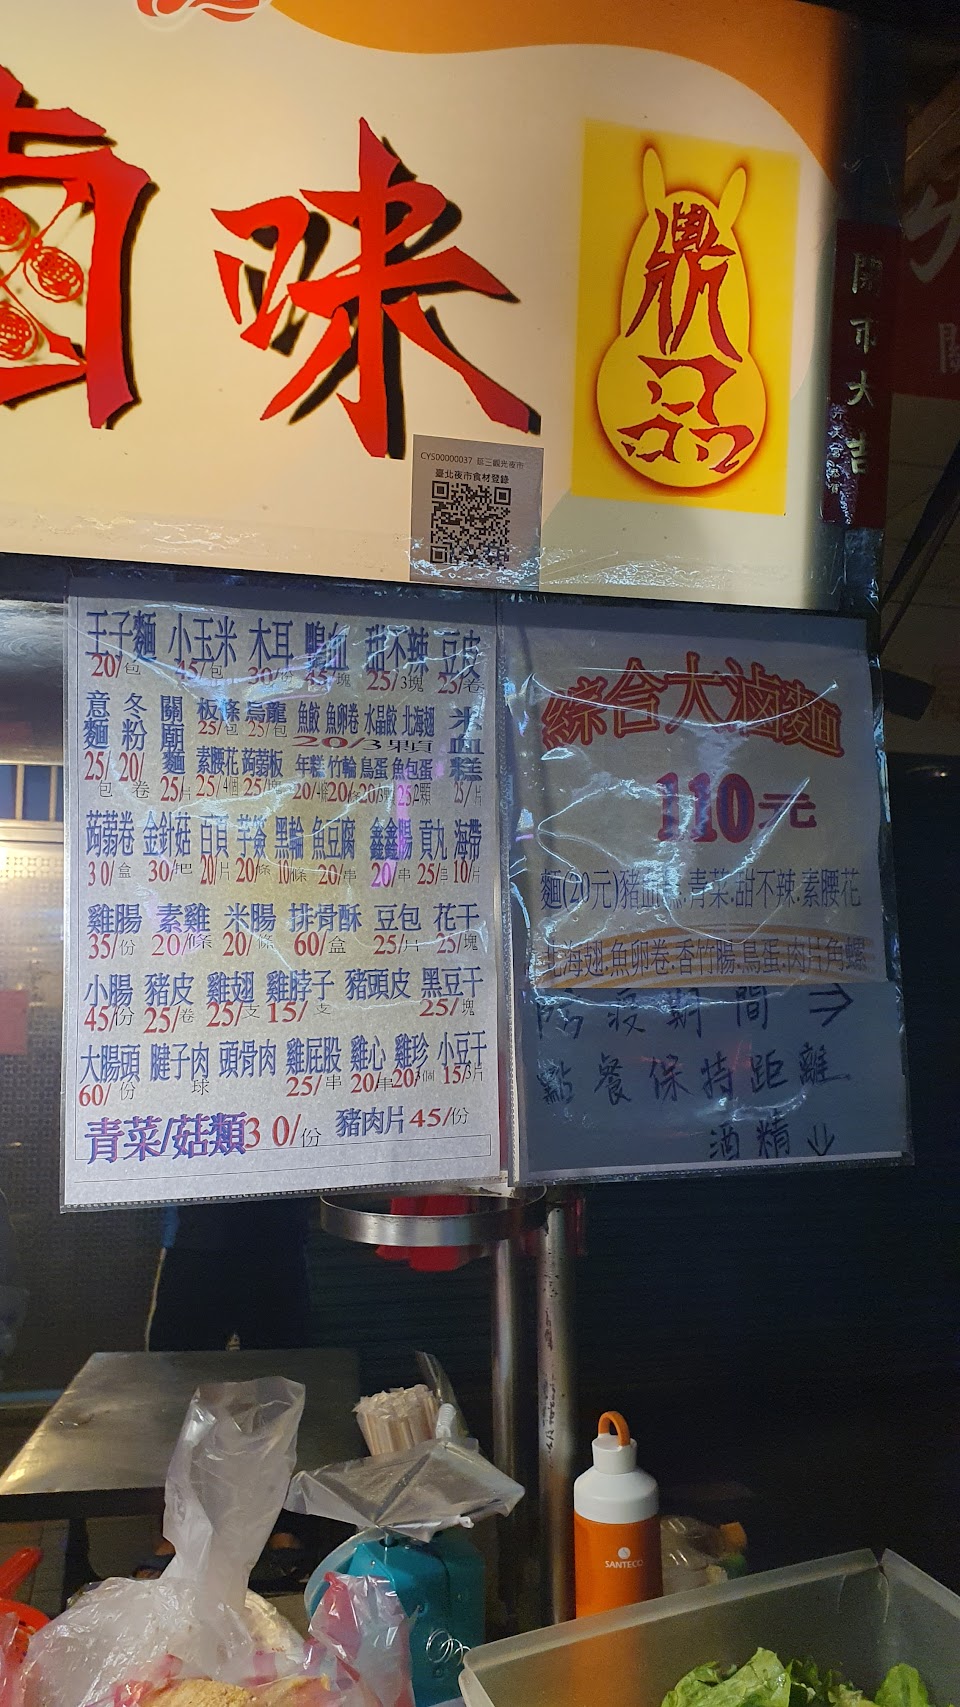 滷味
鼎品
開市大吉
CYS00000037 延三觀光夜市
臺北夜市食材登錄
王子麵 小玉米 木耳 鴨血 甜不辣 豆皮
20/包 45/包 30/份 45/塊 25/3塊 25/卷
意麵 冬粉 關廟麵 板條 烏龍 魚餃 魚卵卷 水晶餃 北海翅 米血糕
25/包 25/包 20/3顆
素腰花 蒟蒻板 年糕 竹輪 鳥蛋 魚包蛋
25/包 20/卷 25/片 25/4個 25/塊 20/4條 20/條 20/3顆 25/2顆 25/片
蒟蒻卷 金針菇 百頁 芋簽 黑輪 魚豆腐 鑫鑫腸 貢丸 海帶
30/盒 30/把 20/片 20/條 10/條 20/串 20/串 25/串 10/片
雞腸 素雞 米腸 排骨酥 豆包 花干
35/份 20/條 20/條 60/盒 25/片 25/塊
小腸 豬皮 雞翅 雞脖子 豬頭皮 黑豆干
45/份 25/卷 25/支 15/支 25/塊
大腸頭 腱子肉 頭骨肉 雞屁股 雞心 雞珍 小豆干
60/份 球 25/串 20/串 20/3個 15/3片
青菜/菇類30/份 豬肉片45/份
綜合大滷麵
110元
麵(20元)豬血糕.青菜.甜不辣.素腰花
北海翅.魚卵卷.香竹腸.鳥蛋.肉片角螺
防疫期間→
點餐保持距離
酒精↓
SANTECO